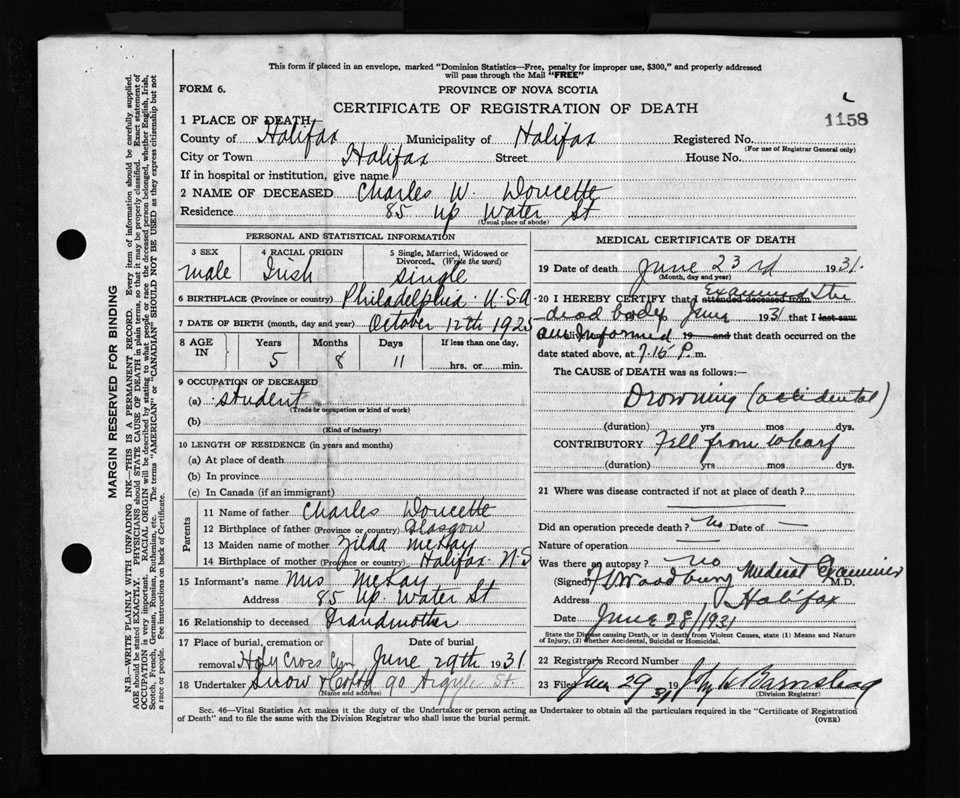 This form if placed in an envelope, marked "Dominion Statistics—Free, penalty for improper use, $300," and properly addressed
will pass through the Mail "FREE"
FORM 6.
PROVINCE OF NOVA SCOTIA
CERTIFICATE OF REGISTRATION OF DEATH
1158
1 PLACE OF DEATH
County of Halifax Municipality of Halifax Registered No.
(For use of Registrar General only)
City or Town Halifax Street House No.
If in hospital or institution, give name
2 NAME OF DECEASED Charles W. Doucette
Residence 85 Up Water St
(Usual place of abode)
MARGIN RESERVED FOR BINDING
N.B.—WRITE PLAINLY WITH UNFADING INK—THIS IS A PERMANENT RECORD. Every item of information should be carefully supplied.
AGE should be stated EXACTLY. PHYSICIANS should STATE CAUSE OF DEATH in plain terms, so that it may be properly classified. Exact statement of
OCCUPATION is very important. RACIAL ORIGIN will be described by stating to what people or race the deceased person belonged, whether English, Irish,
Scotch, French, German, Russian, Ruthenian, etc. The terms "AMERICAN" or "CANADIAN" SHOULD NOT BE USED as they express citizenship but not
a race or people. See instructions on back of Certificate.
PERSONAL AND STATISTICAL INFORMATION
3 SEX male
4 RACIAL ORIGIN Irish
5 Single, Married, Widowed or
Divorced. (Write the word)
single
6 BIRTHPLACE (Province or country) Philadelphia. U.S.A
7 DATE OF BIRTH (month, day and year) October 12th 1925
8 AGE IN Years 5 Months 8 Days 11 If less than one day,
hrs. or min.
9 OCCUPATION OF DECEASED
(a) student
(Trade or occupation or kind of work)
(b)
(Kind of industry)
10 LENGTH OF RESIDENCE (in years and months)
(a) At place of death
(b) In province
(c) In Canada (if an immigrant)
Parents
11 Name of father Charles Doucette
12 Birthplace of father (Province or country) Glasgow
13 Maiden name of mother Zilda McKay
14 Birthplace of mother (Province or country) Halifax. N.S
15 Informant's name Mrs McKay
Address 85 Up. Water St
16 Relationship to deceased Grandmother
17 Place of burial, cremation or removal Holy Cross Cem
Date of burial June 29th 1931
18 Undertaker Snow & Co Ltd 90 Argyle St.
(Name and address)
MEDICAL CERTIFICATE OF DEATH
19 Date of death June 23rd 1931.
(Month, day and year)
20 I HEREBY CERTIFY that I attended deceased from Examined the
dead body June 1931 that I last saw
alive on am Informed 19 and that death occurred on the
date stated above, at 7.15 P. m.
The CAUSE OF DEATH was as follows:—
Drowning (accidental)
(duration) yrs mos dys.
CONTRIBUTORY Fell from wharf
(duration) yrs mos dys.
21 Where was disease contracted if not at place of death?
Did an operation precede death? No Date of —
Nature of operation —
Was there an autopsy? no
(Signed) Woodbury Medical Examiner M.D.
Address Halifax
Date June 28/1931
State the Disease causing Death, or in death from Violent Causes, state (1) Means and Nature
of Injury, (2) Whether Accidental, Suicidal or Homicidal.
22 Registrar's Record Number
23 Filed June 29 1931 John W Barnstead
(Division Registrar)
Sec. 46—Vital Statistics Act makes it the duty of the Undertaker or person acting as Undertaker to obtain all the particulars required in the "Certificate of Registration
of Death" and to file the same with the Division Registrar who shall issue the burial permit.
(OVER)